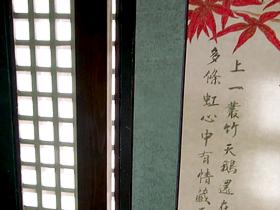 上一叢竹天鵝還在
多條虹心中有情藏